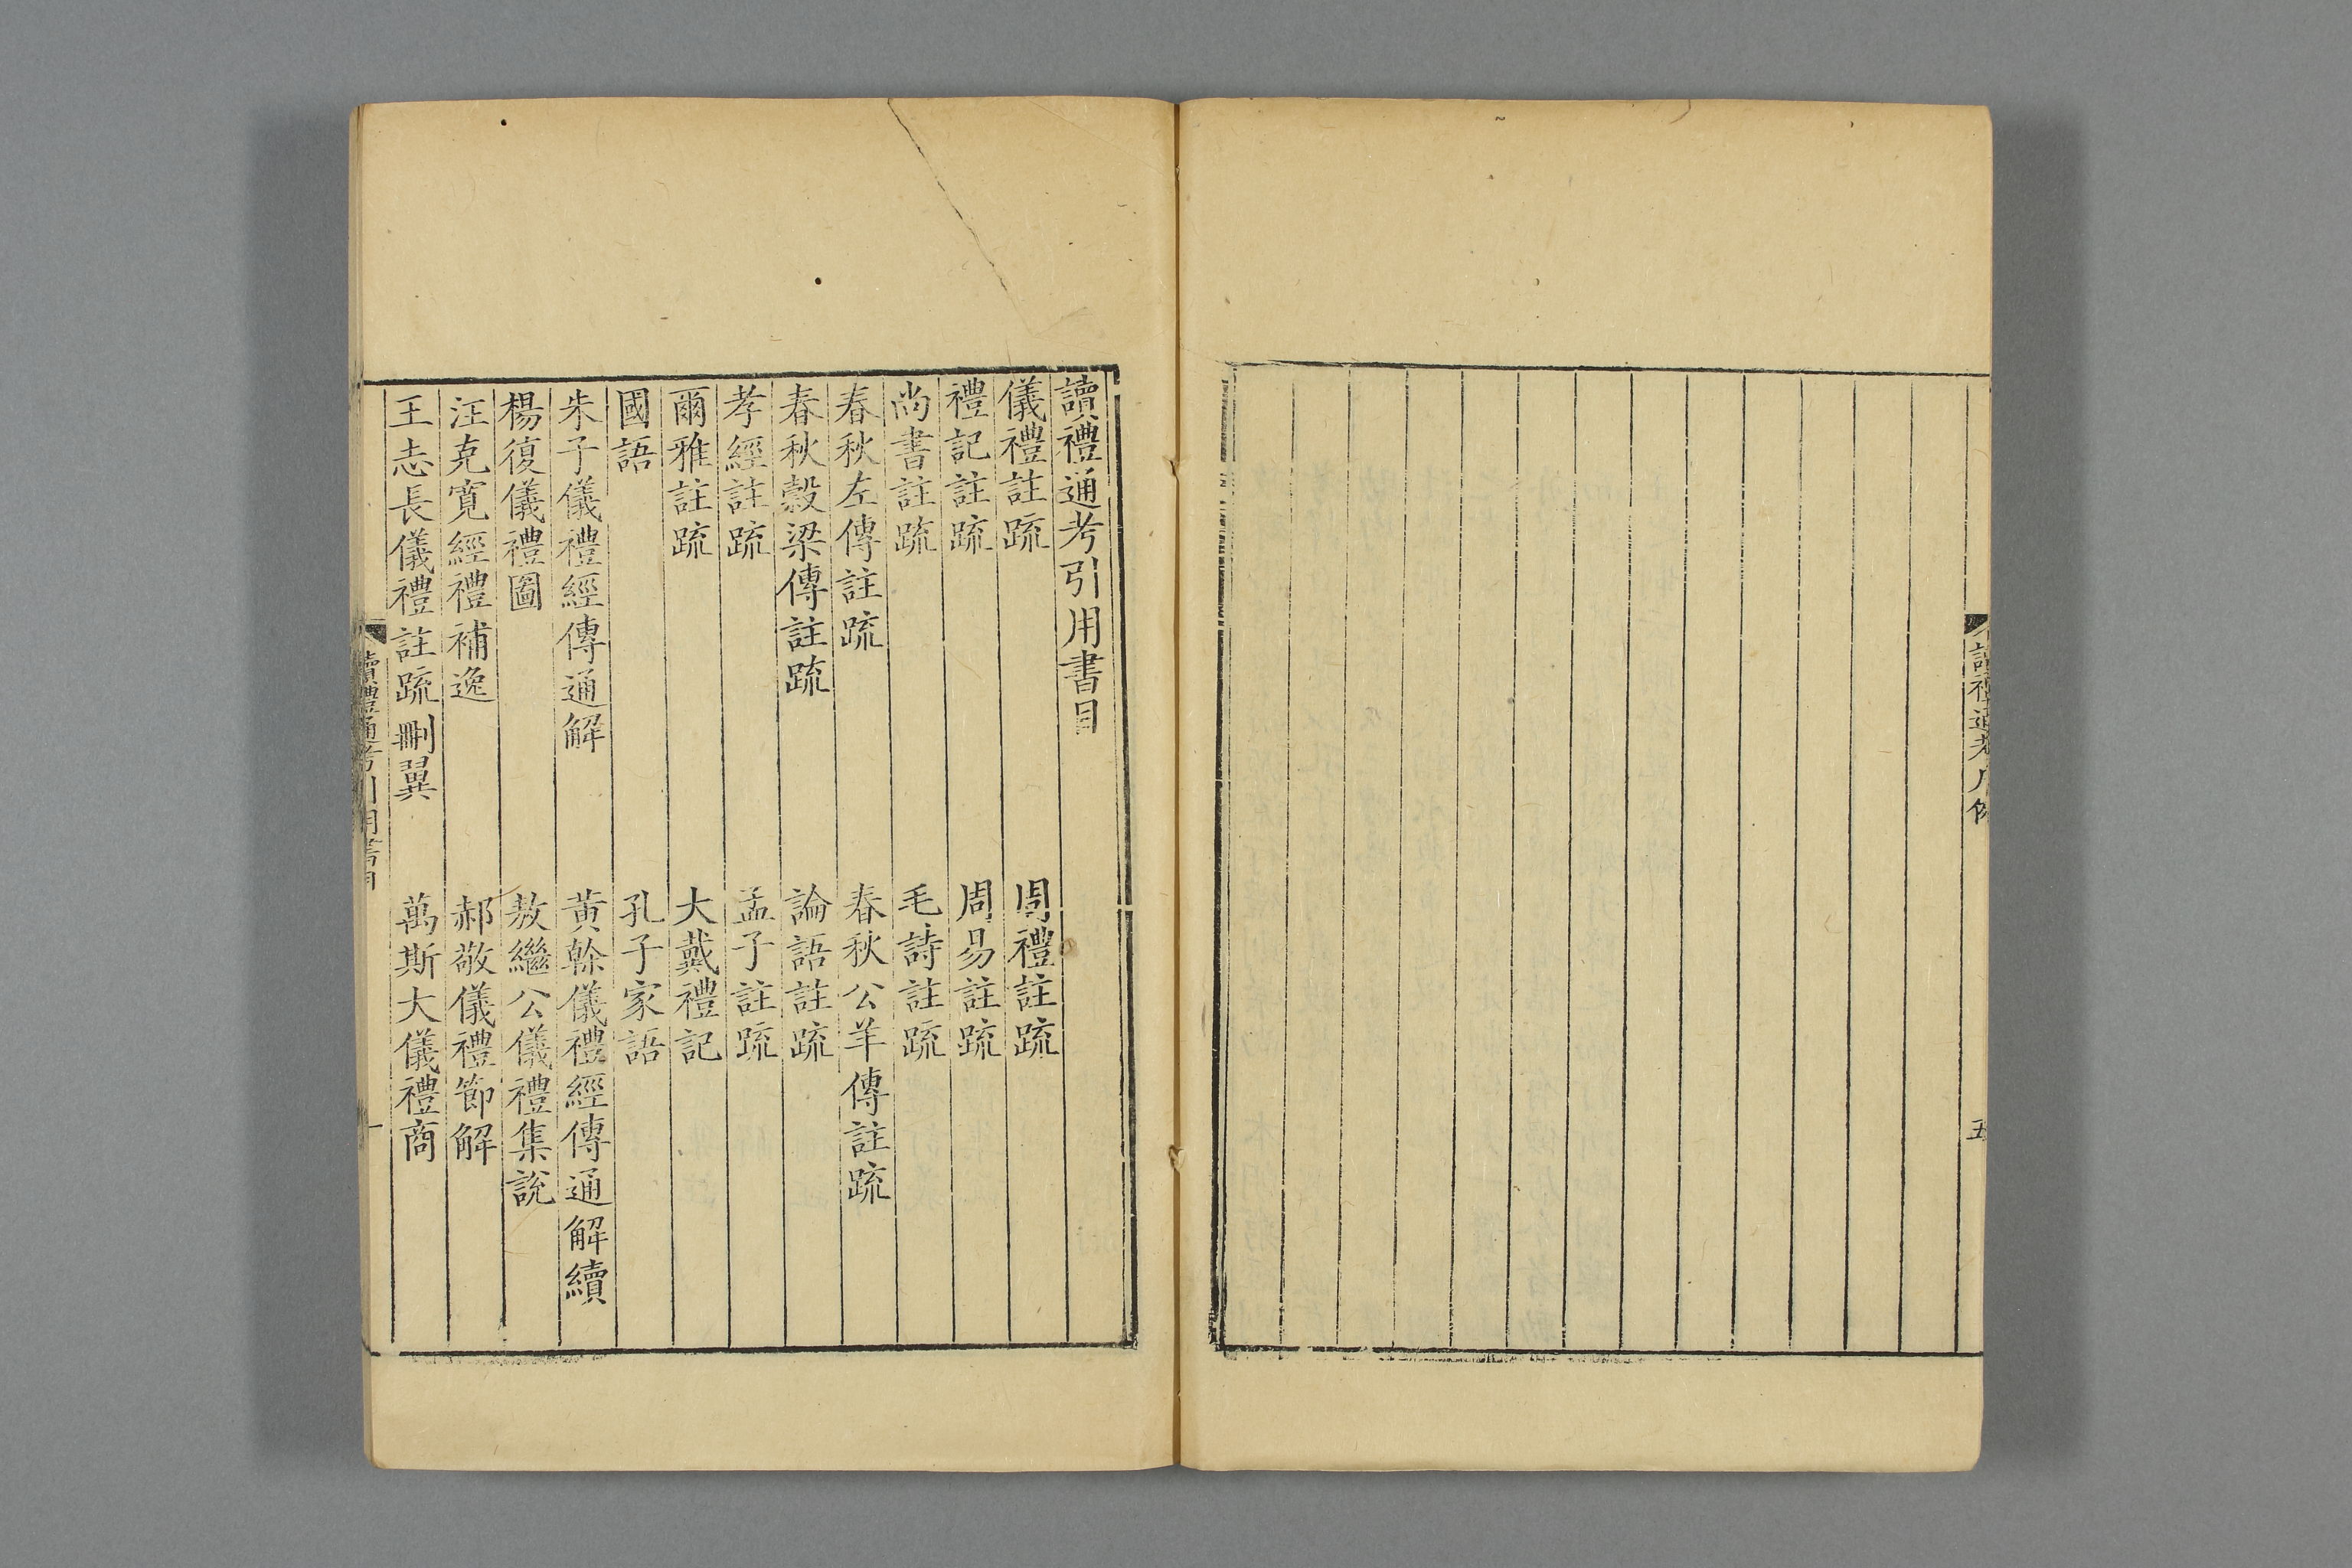 讀禮通考凡例
五
讀禮通考引用書目
儀禮註疏　周禮註疏
禮記註疏　周易註疏
尚書註疏　毛詩註疏
春秋左傳註疏　春秋公羊傳註疏
春秋穀梁傳註疏　論語註疏
孝經註疏　孟子註疏
爾雅註疏　大戴禮記
國語　孔子家語
朱子儀禮經傳通解　黃榦儀禮經傳通解續
楊復儀禮圖　敖繼公儀禮集說
汪克寬經禮補逸　郝敬儀禮節解
王志長儀禮註疏刪翼　萬斯大儀禮商
讀禮通考引用書目
一